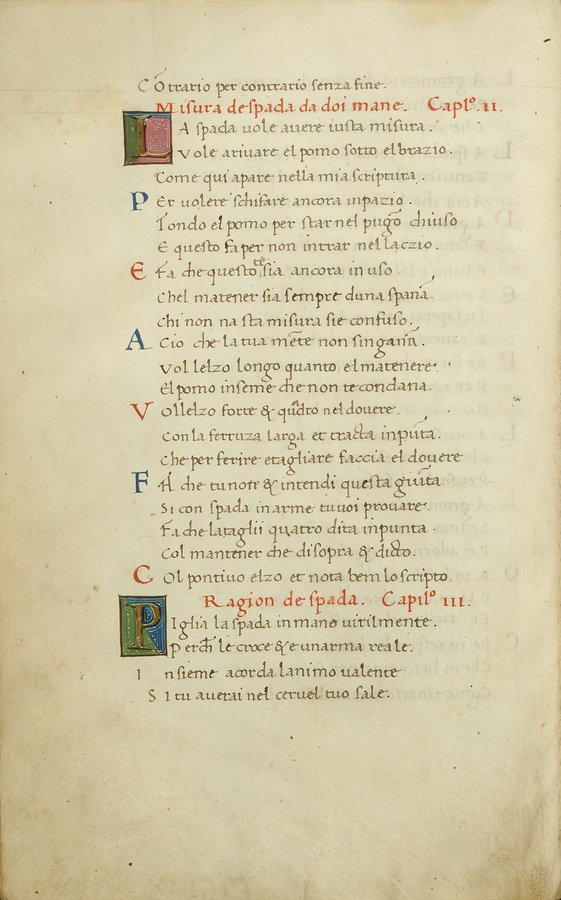 C Ōtrario per contrario senza fine.
Misura de spada da doi mane. Caplº. II.
LA spada uole auere iusta misura.
Vole ariuare el pomo sotto el brazio.
Come qui apare nella mia scriptura.
PEr uolere schifare ancora inpazio.
Tondo el pomo per star nel pugno chiuso
E questo fa per non intrar nel laczio.
EFa che questo te sia ancora in uso.
Chel matener sia sempre duna spanā.
Chi non na sta misura sie confuso.
ACio che la tua mēte non singanā.
Vol lelzo longo quanto el matenere.
El pomo inseme che non te condana.
VOl lelzo forte & quadro nel douere.
Con la ferruza larga et tracta in pūta.
Che per ferire e tagliare faccia el douere
FA che tu note & intendi questa giūta
Si con spada in arme tu uoi prouare.
Fa che la taglii quatro dita in punta
Col mantener che di sopra & dicto.
COl pontiuo elzo et nota ben lo scripto.
Ragion de spada. Capilº III.
PIglia la spada in mane uirilmente.
Per ch̄ le croce & e un arma reale.
I nsieme acorda lanimo ualente
S i tu auerai nel ceruel tuo sale.